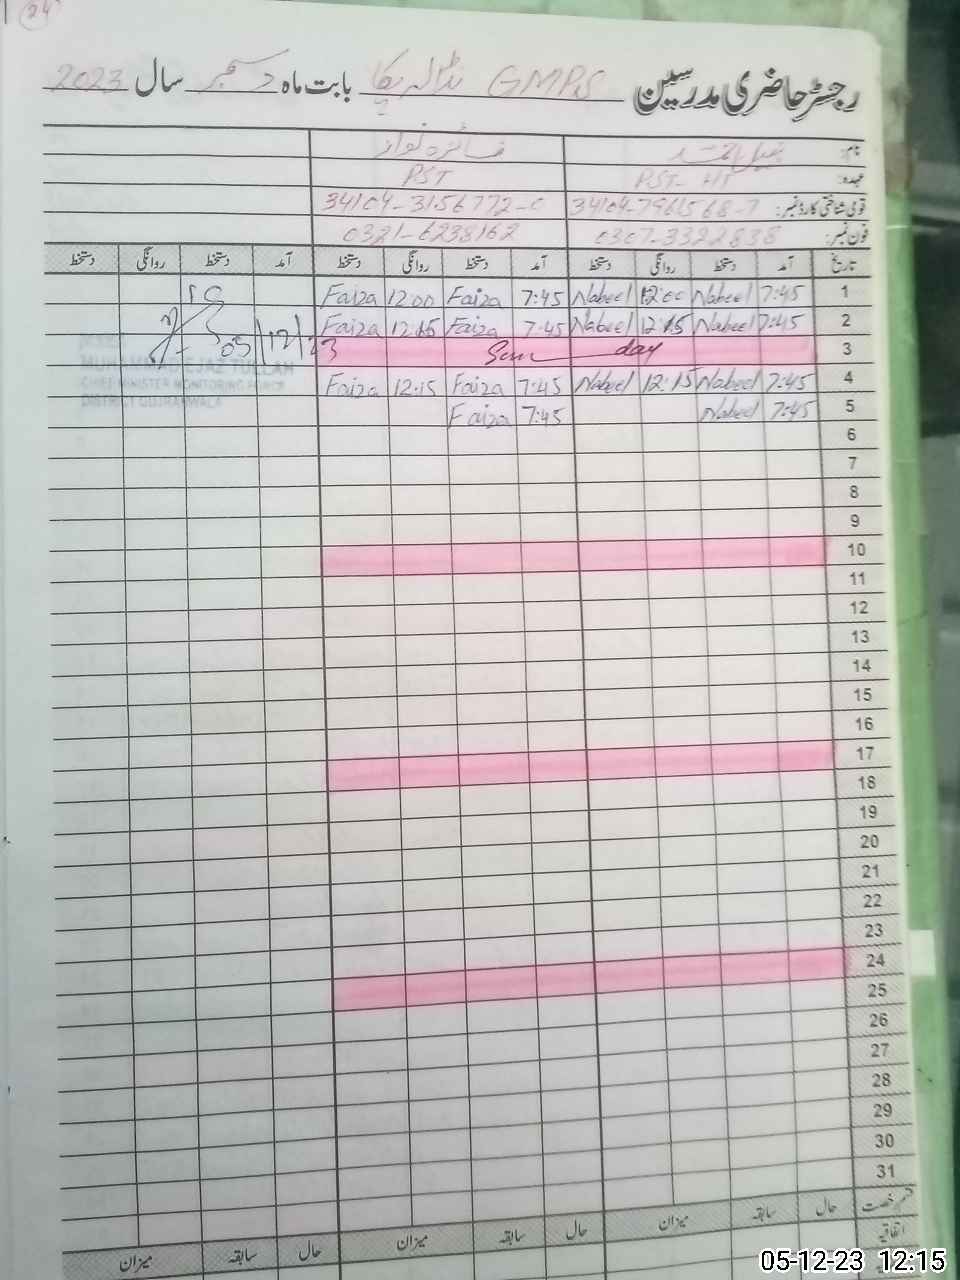 24
رجسٹر حاضری مدرسین GMPS نڈالہ پکا بابت ماہ دسمبر سال 2023
نام: نبیل احمد فائزہ نواز
عہدہ: PST-HT PST
قومی شناختی کارڈ نمبر: 34104-7961568-7 34104-3156772-0
فون نمبر: 0307-3322838 0321-6238162
تاریخ آمد دستخط روانگی دستخط آمد دستخط روانگی دستخط آمد دستخط روانگی دستخط
1 7:45 Nabeel 12:00 Nabeel 7:45 Faiza 12:00 Faiza
2 7:45 Nabeel 12:15 Nabeel 7:45 Faiza 12:15 Faiza
3 Sun day
05/12/23
MUHAMMAD EJAZ TULLAH
CHIEF MINISTER MONITORING FORCE
DISTRICT GUJRANWALA
4 7:45 Nabeel 12:15 Nabeel 7:45 Faiza 12:15 Faiza
5 7:45 Nabeel 7:45 Faiza
6
7
8
9
10
11
12
13
14
15
16
17
18
19
20
21
22
23
24
25
26
27
28
29
30
31
قسم رخصت حال سابقہ میزان حال سابقہ میزان حال سابقہ میزان
اتفاقیہ
05-12-23 12:15